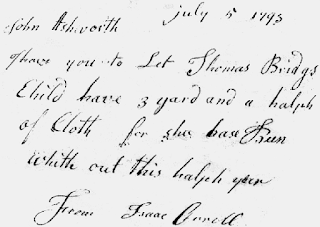 July 5 1793
John Ashworth
you to Let Thomas Bridgs
Child have 3 yard and a halph
of Cloth for she hase Been
Whith out this halph yer
From Isaac Orrell